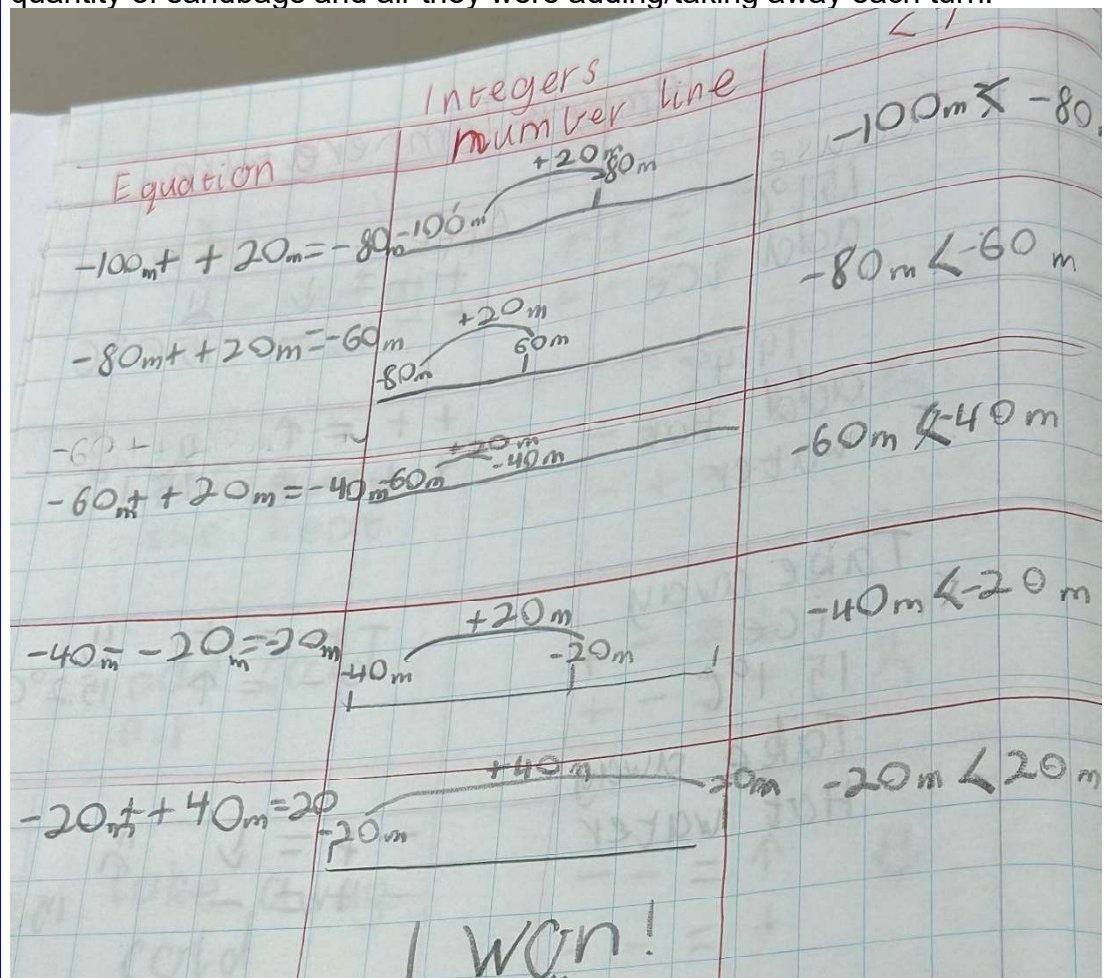 quantity of sandbags and air they were adding/taking away each turn.
Integers
< >
Equation
number line
-100m + + 20m = -80m
-100m
+20m
-80m
-100m < -80
-80m + + 20m = -60m
-80m
+20m
60m
-80m < -60m
-60m + + 20m = -40m
-60m
+20m
-40m
-60m < -40m
-40m - - 20m = -20m
-40m
+20m
-20m
-40m < -20m
-20m + + 40m = 20
-20m
+40m
20m
-20m < 20m
I won!